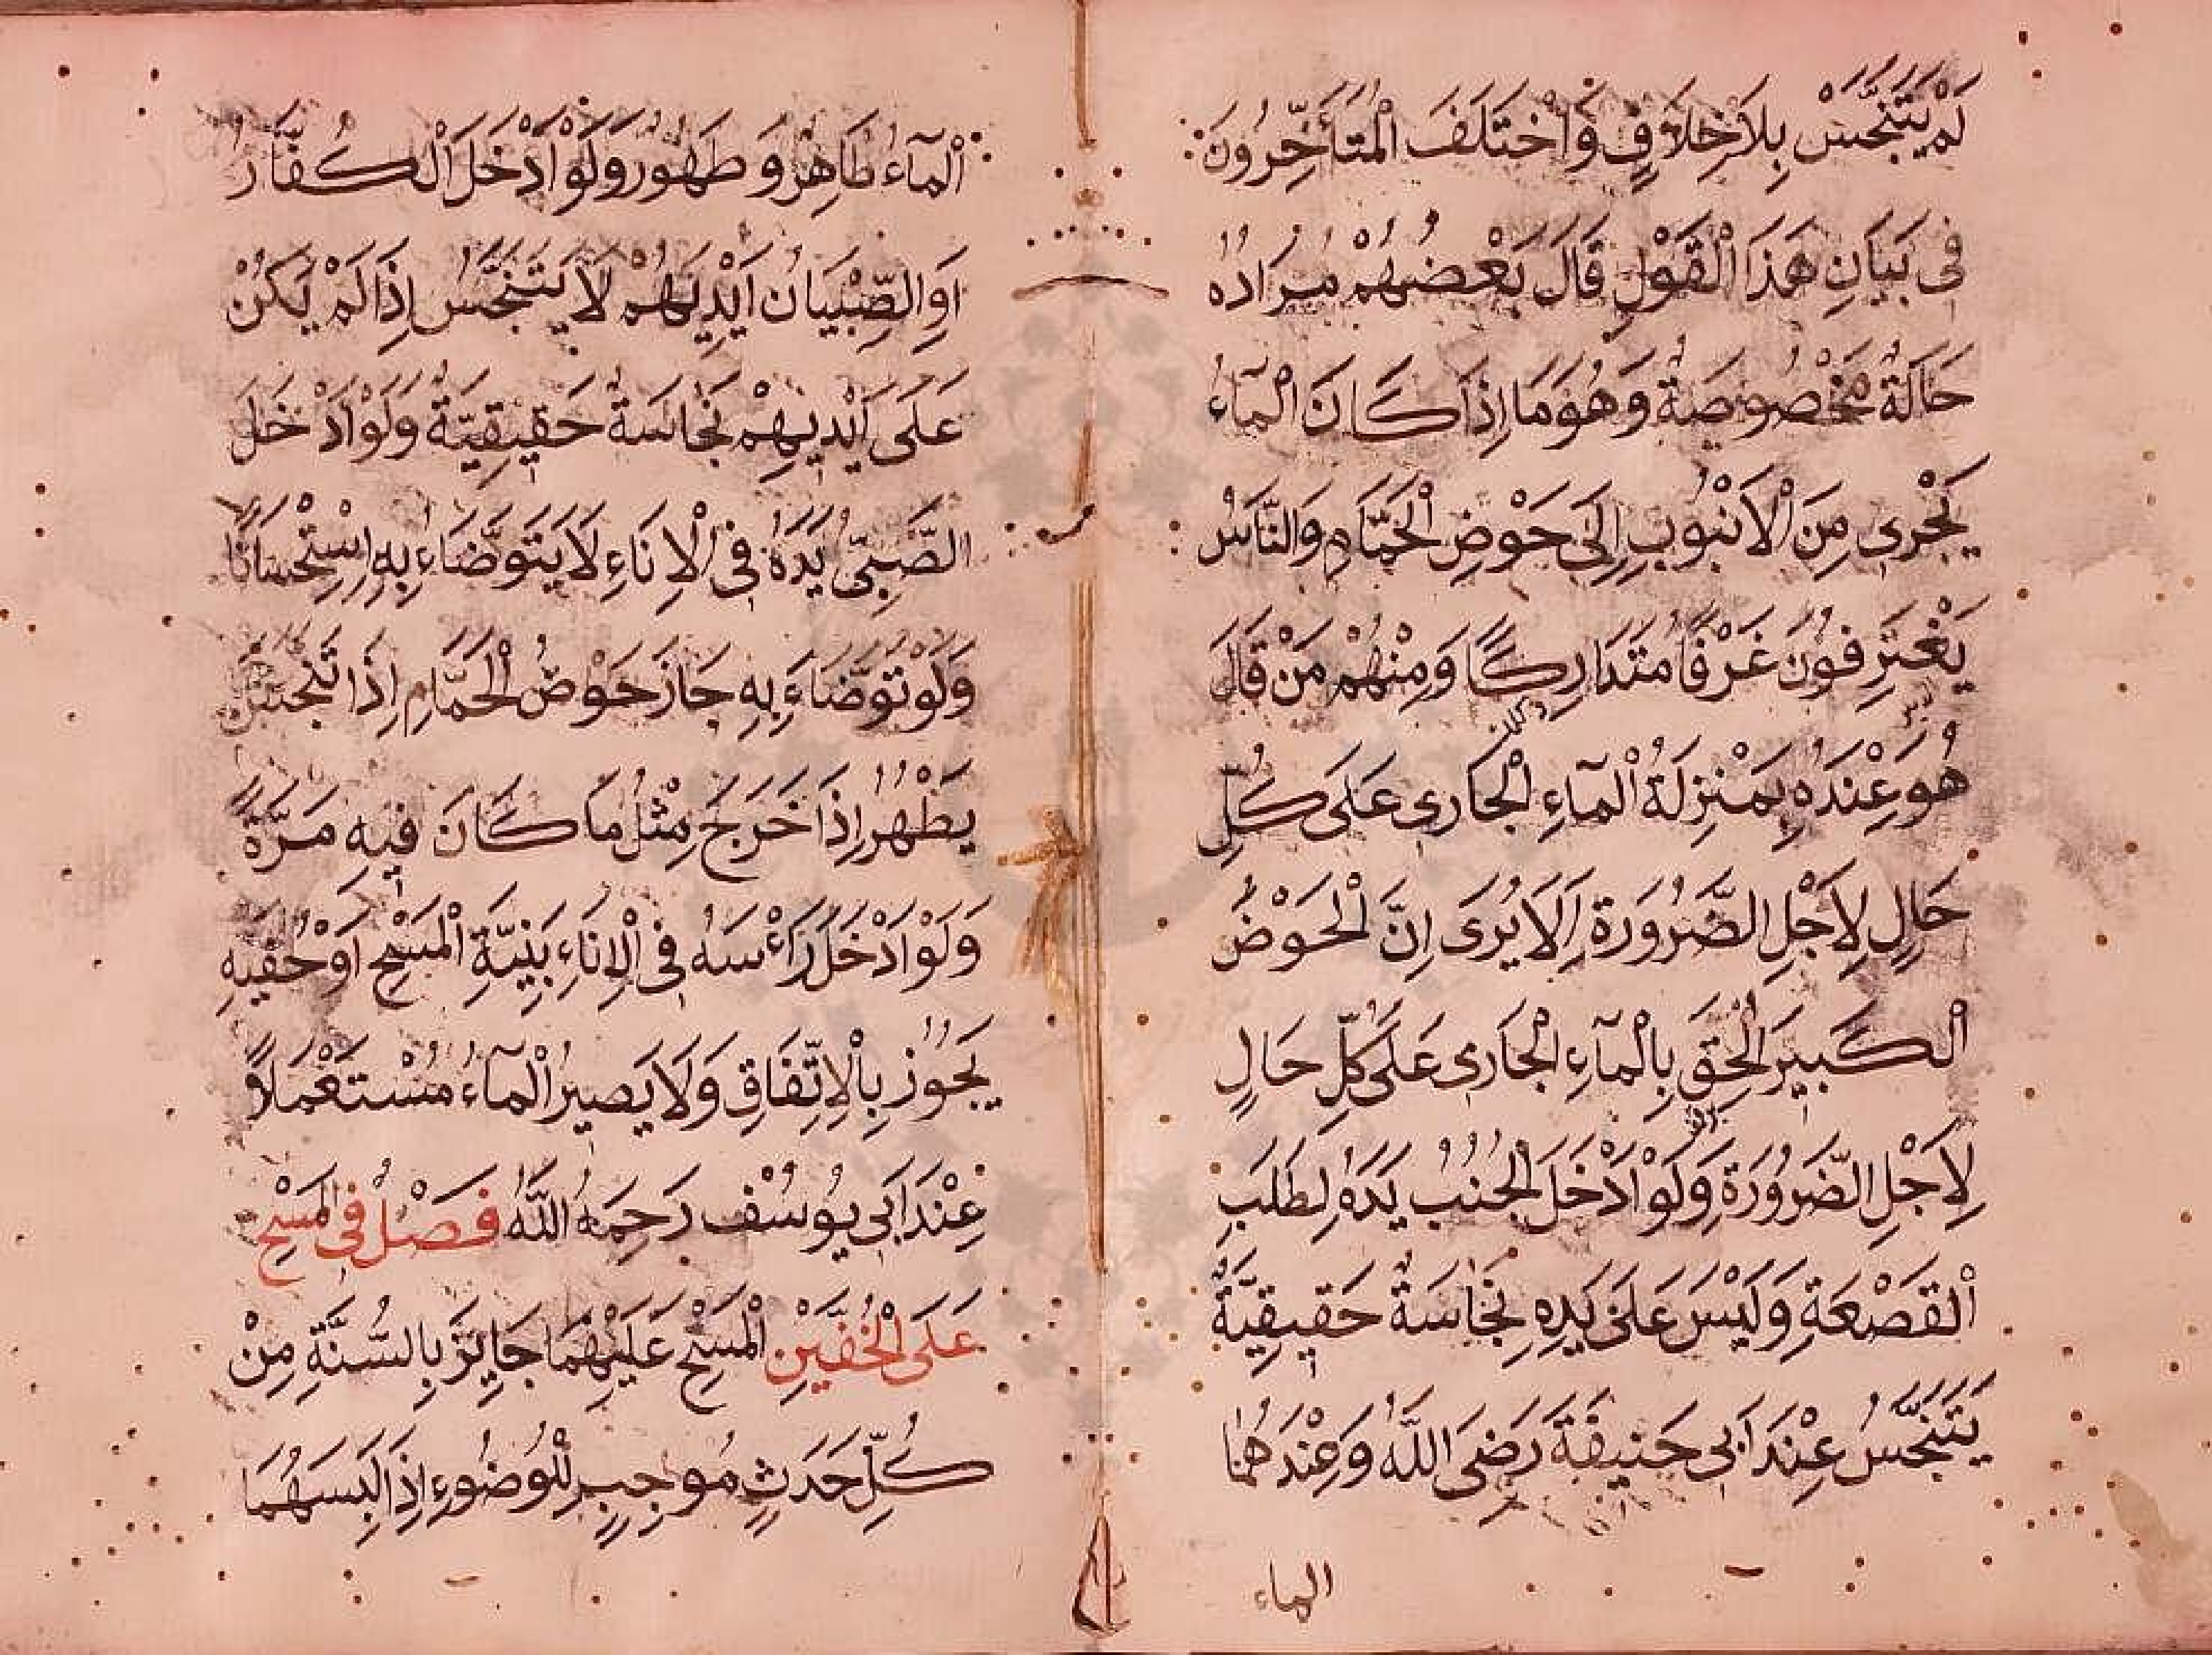 لَمْ يَتَنَجَّسْ بِلَاخِلَافٍ وَاخْتَلَفَ الْمُتَأَخِّرُونَ
فِى بَيَانِ هَذَا الْقَوْلِ قَالَ بَعْضُهُمْ مُرَادُهُ
حَالَةٌ مَخْصُوصَةٌ وَهُوَ مَا اِذَا كَانَ الْمَآءُ
يَجْرِى مِنَ الْاَنْبُوبِ اِلَى حَوْضِ الْحَمَّامِ وَالنَّاسُ
يَغْتَرِفُونَ غَرْفًا مُتَدَارِكًا وَمِنْهُمْ مَنْ قَالَ
هُوَ عِنْدَهُ بِمَنْزِلَةِ الْمَآءِ الْجَارِى عَلَى كُلِّ
حَالٍ لِاَجْلِ الضَّرُورَةِ اَلَا يُرَى اِنَّ الْحَوْضَ
الْكَبِيرَ اُلْحِقَ بِالْمَآءِ الْجَارِى عَلَى كُلِّ حَالٍ
لِاَجْلِ الضَّرُورَةِ وَلَوْ اَدْخَلَ الْجُنُبُ يَدَهُ لِطَلَبِ
الْقَصْعَةِ وَلَيْسَ عَلَى يَدِهِ نَجَاسَةٌ حَقِيقِيَّةٌ
يَتَنَجَّسُ عِنْدَ اَبِى حَنِيفَةَ رَضِىَ اللّٰهُ وَعِنْدَهُمَا
الماء
اَلْمَآءُ طَاهِرٌ وَ طَهُورٌ وَلَوْ اَدْخَلَ الْكُفَّارُ
اَوِ الصِّبْيَانُ اَيْدِيَهُمْ لَا يَتَنَجَّسُ اِذَا لَمْ يَكُنْ
عَلَى اَيْدِيهِمْ نَجَاسَةٌ حَقِيقِيَّةٌ وَلَوْ اَدْخَلَ
الصَّبِىُّ يَدَهُ فِى الْاِنَاءِ لَا يَتَوَضَّاءُ بِهِ اِسْتِحْسَانًا
وَلَوْ تَوَضَّاءَ بِهِ جَازَ حَوْضُ الْحَمَّامِ اِذَا تَنَجَّسَ
يَطْهُرُ اِذَا خَرَجَ مِثْلُ مَا كَانَ فِيهِ مَرَّةً
وَلَوْ اَدْخَلَ رَاْءسَهُ فِى الْاِنَاءِ بِنِيَّةِ الْمَسْحِ اَوْ خُفَّيْهِ
يَجُوزُ بِالْاِتِّفَاقِ وَلَا يَصِيرُ الْمَآءُ مُسْتَعْمَلًا
عِنْدَ اَبِى يُوسُفَ رَحِمَهُ اللّٰهُ فَصْلٌ فِى الْمَسْحِ
عَلَى الْخُفَّيْنِ الْمَسْحُ عَلَيْهِمَا جَايِزٌ بِالسُّنَّةِ مِنْ
كُلِّ حَدَثٍ مُوجِبٍ لِلْوُضُوءِ اِذَا لَبِسَهُمَا